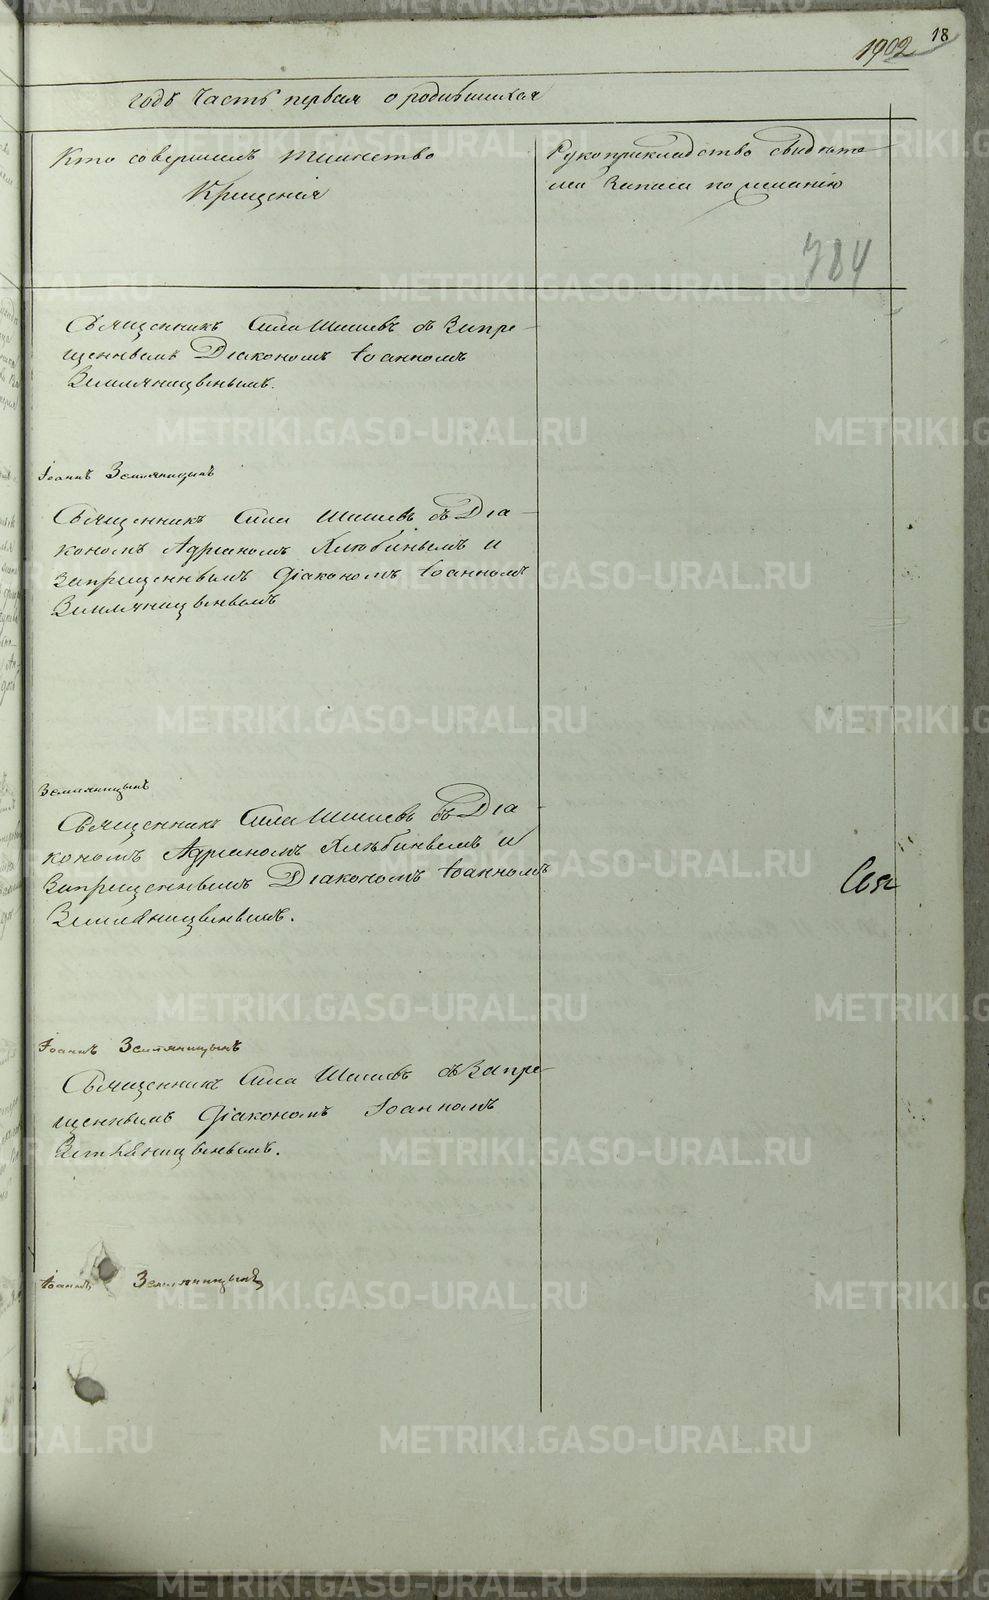 18
1902
годъ Часть первая о родившихся
Кто совершилъ таинство
Крещенія
Рукоприкладство свидѣте
лей записи по желанію
384
Священникъ Сила Шишевъ съ Запре-
щеннымъ Діакономъ Іоанномъ
Земляницынымъ.
Іоаннъ Земляницынъ
Священникъ Сила Шишевъ съ Діа-
кономъ Адріаномъ Хлѣбинымъ и
Запрещеннымъ Діакономъ Іоанномъ
Земляницынымъ
Земляницынъ
Священникъ Сила Шишевъ съ Діа-
кономъ Адріаномъ Хлѣбинымъ и
Запрещеннымъ Діакономъ Іоанномъ
Земляницынымъ.
Іоаннъ Земляницынъ
Священникъ Сила Шишевъ съ Запре-
щеннымъ Діакономъ Іоанномъ
Земляницынымъ.
Іоаннъ Земляницынъ
METRIKI.GASO-URAL.RU